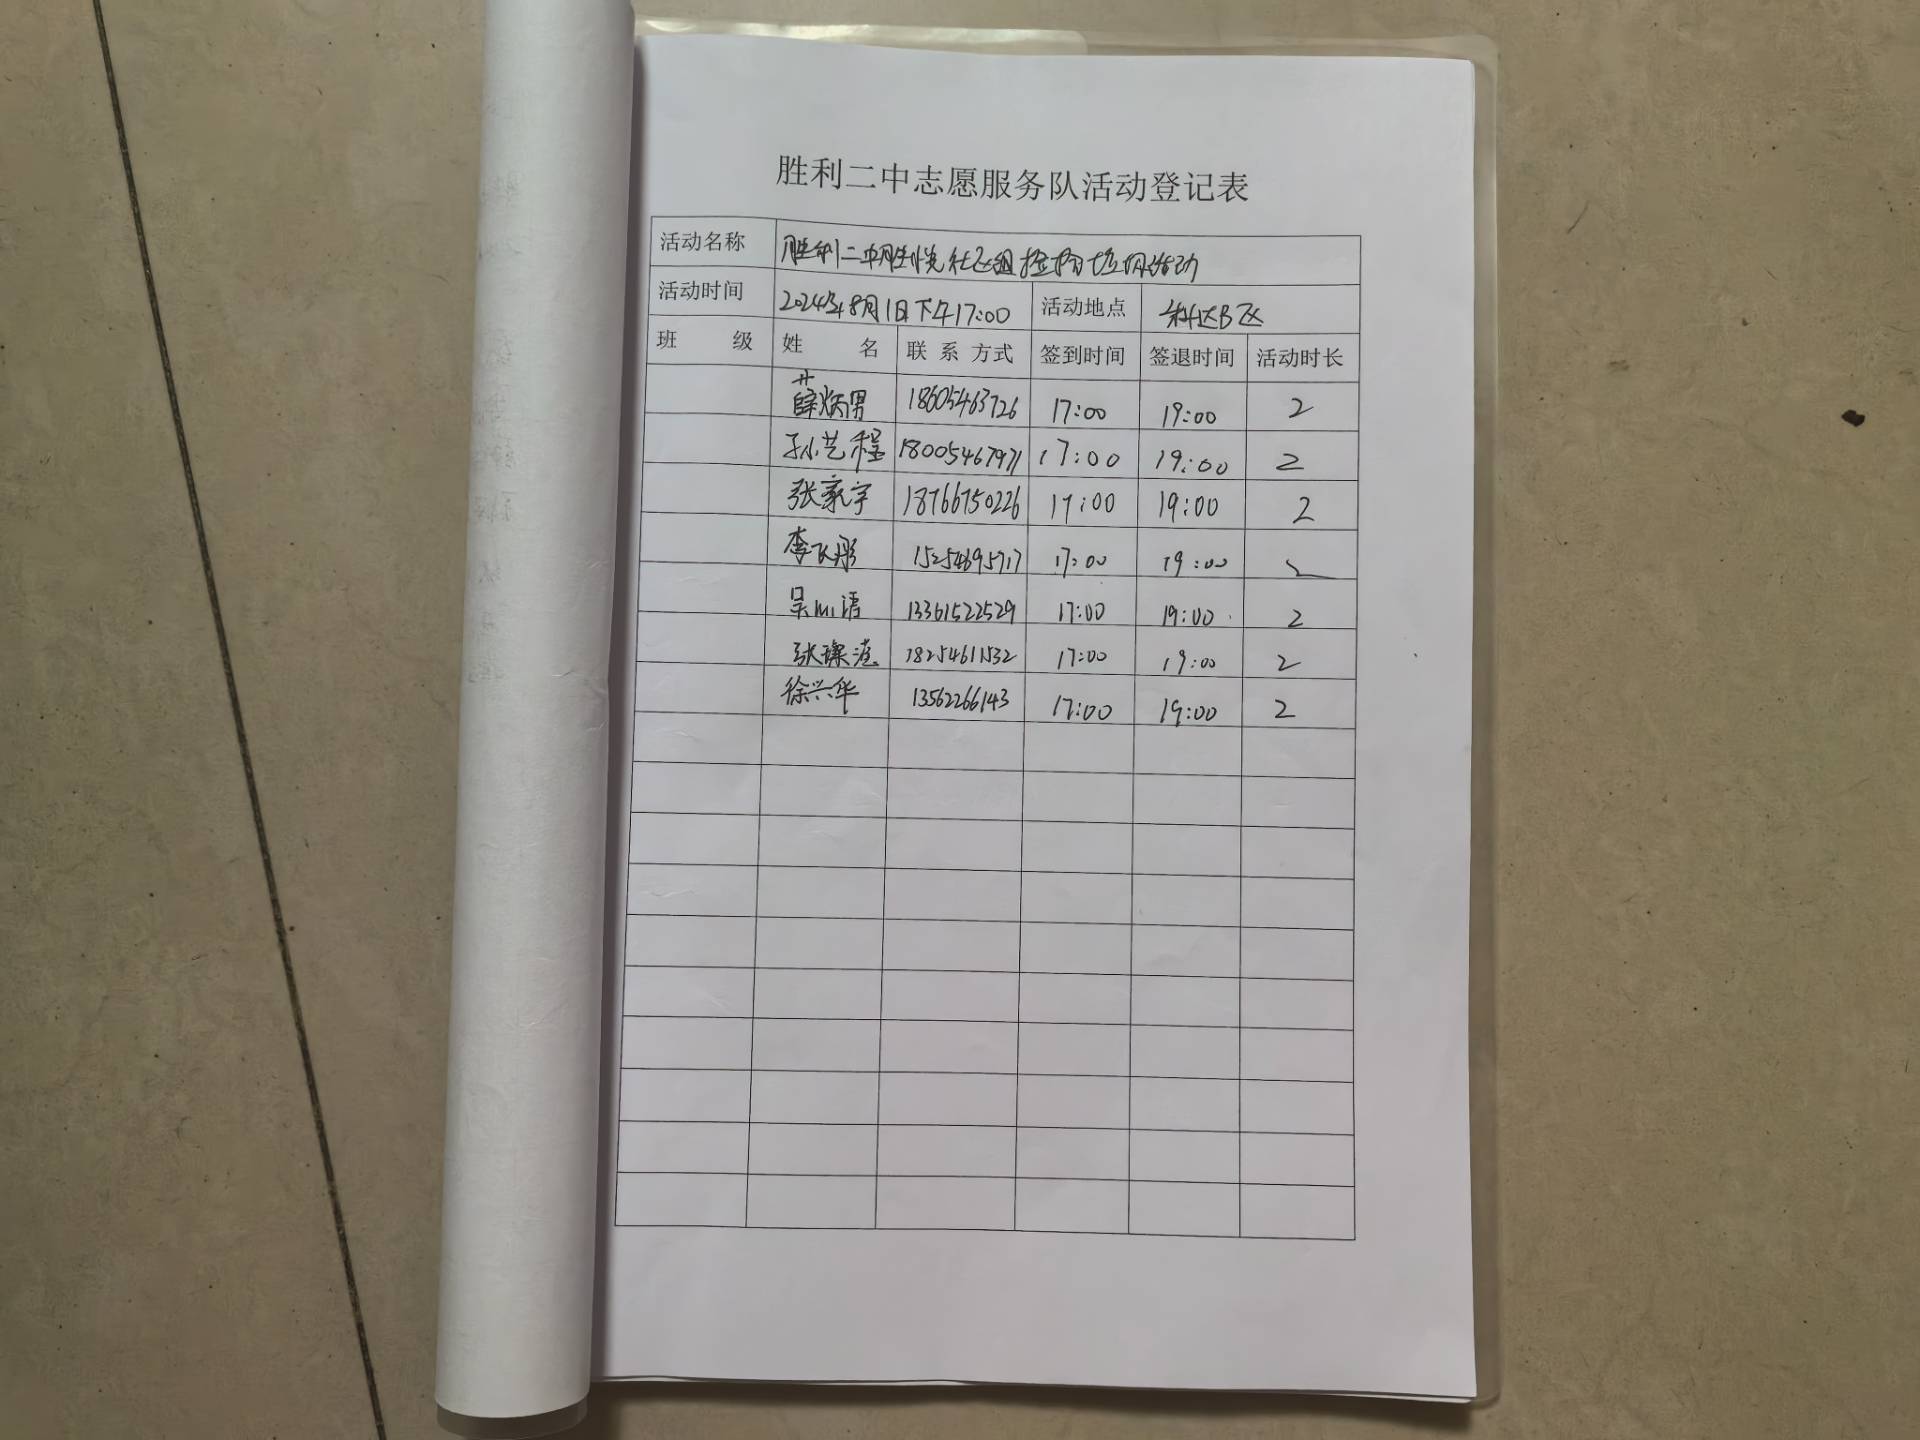 胜利二中志愿服务队活动登记表
活动名称 胜利二中胜悦社区组捡拾垃圾活动
活动时间 2024年8月1日下午17:00 活动地点 科达B区
班 级 姓 名 联 系 方式 签到时间 签退时间 活动时长
薛炳男 18605463726 17:00 19:00 2
孙艺程 18005467971 17:00 19:00 2
张家宇 18766750226 17:00 19:00 2
李飞彤 15254695717 17:00 19:00 2
吴 语 13361522529 17:00 19:00 2
张 18254611532 17:00 19:00 2
徐兴华 13562266143 17:00 19:00 2